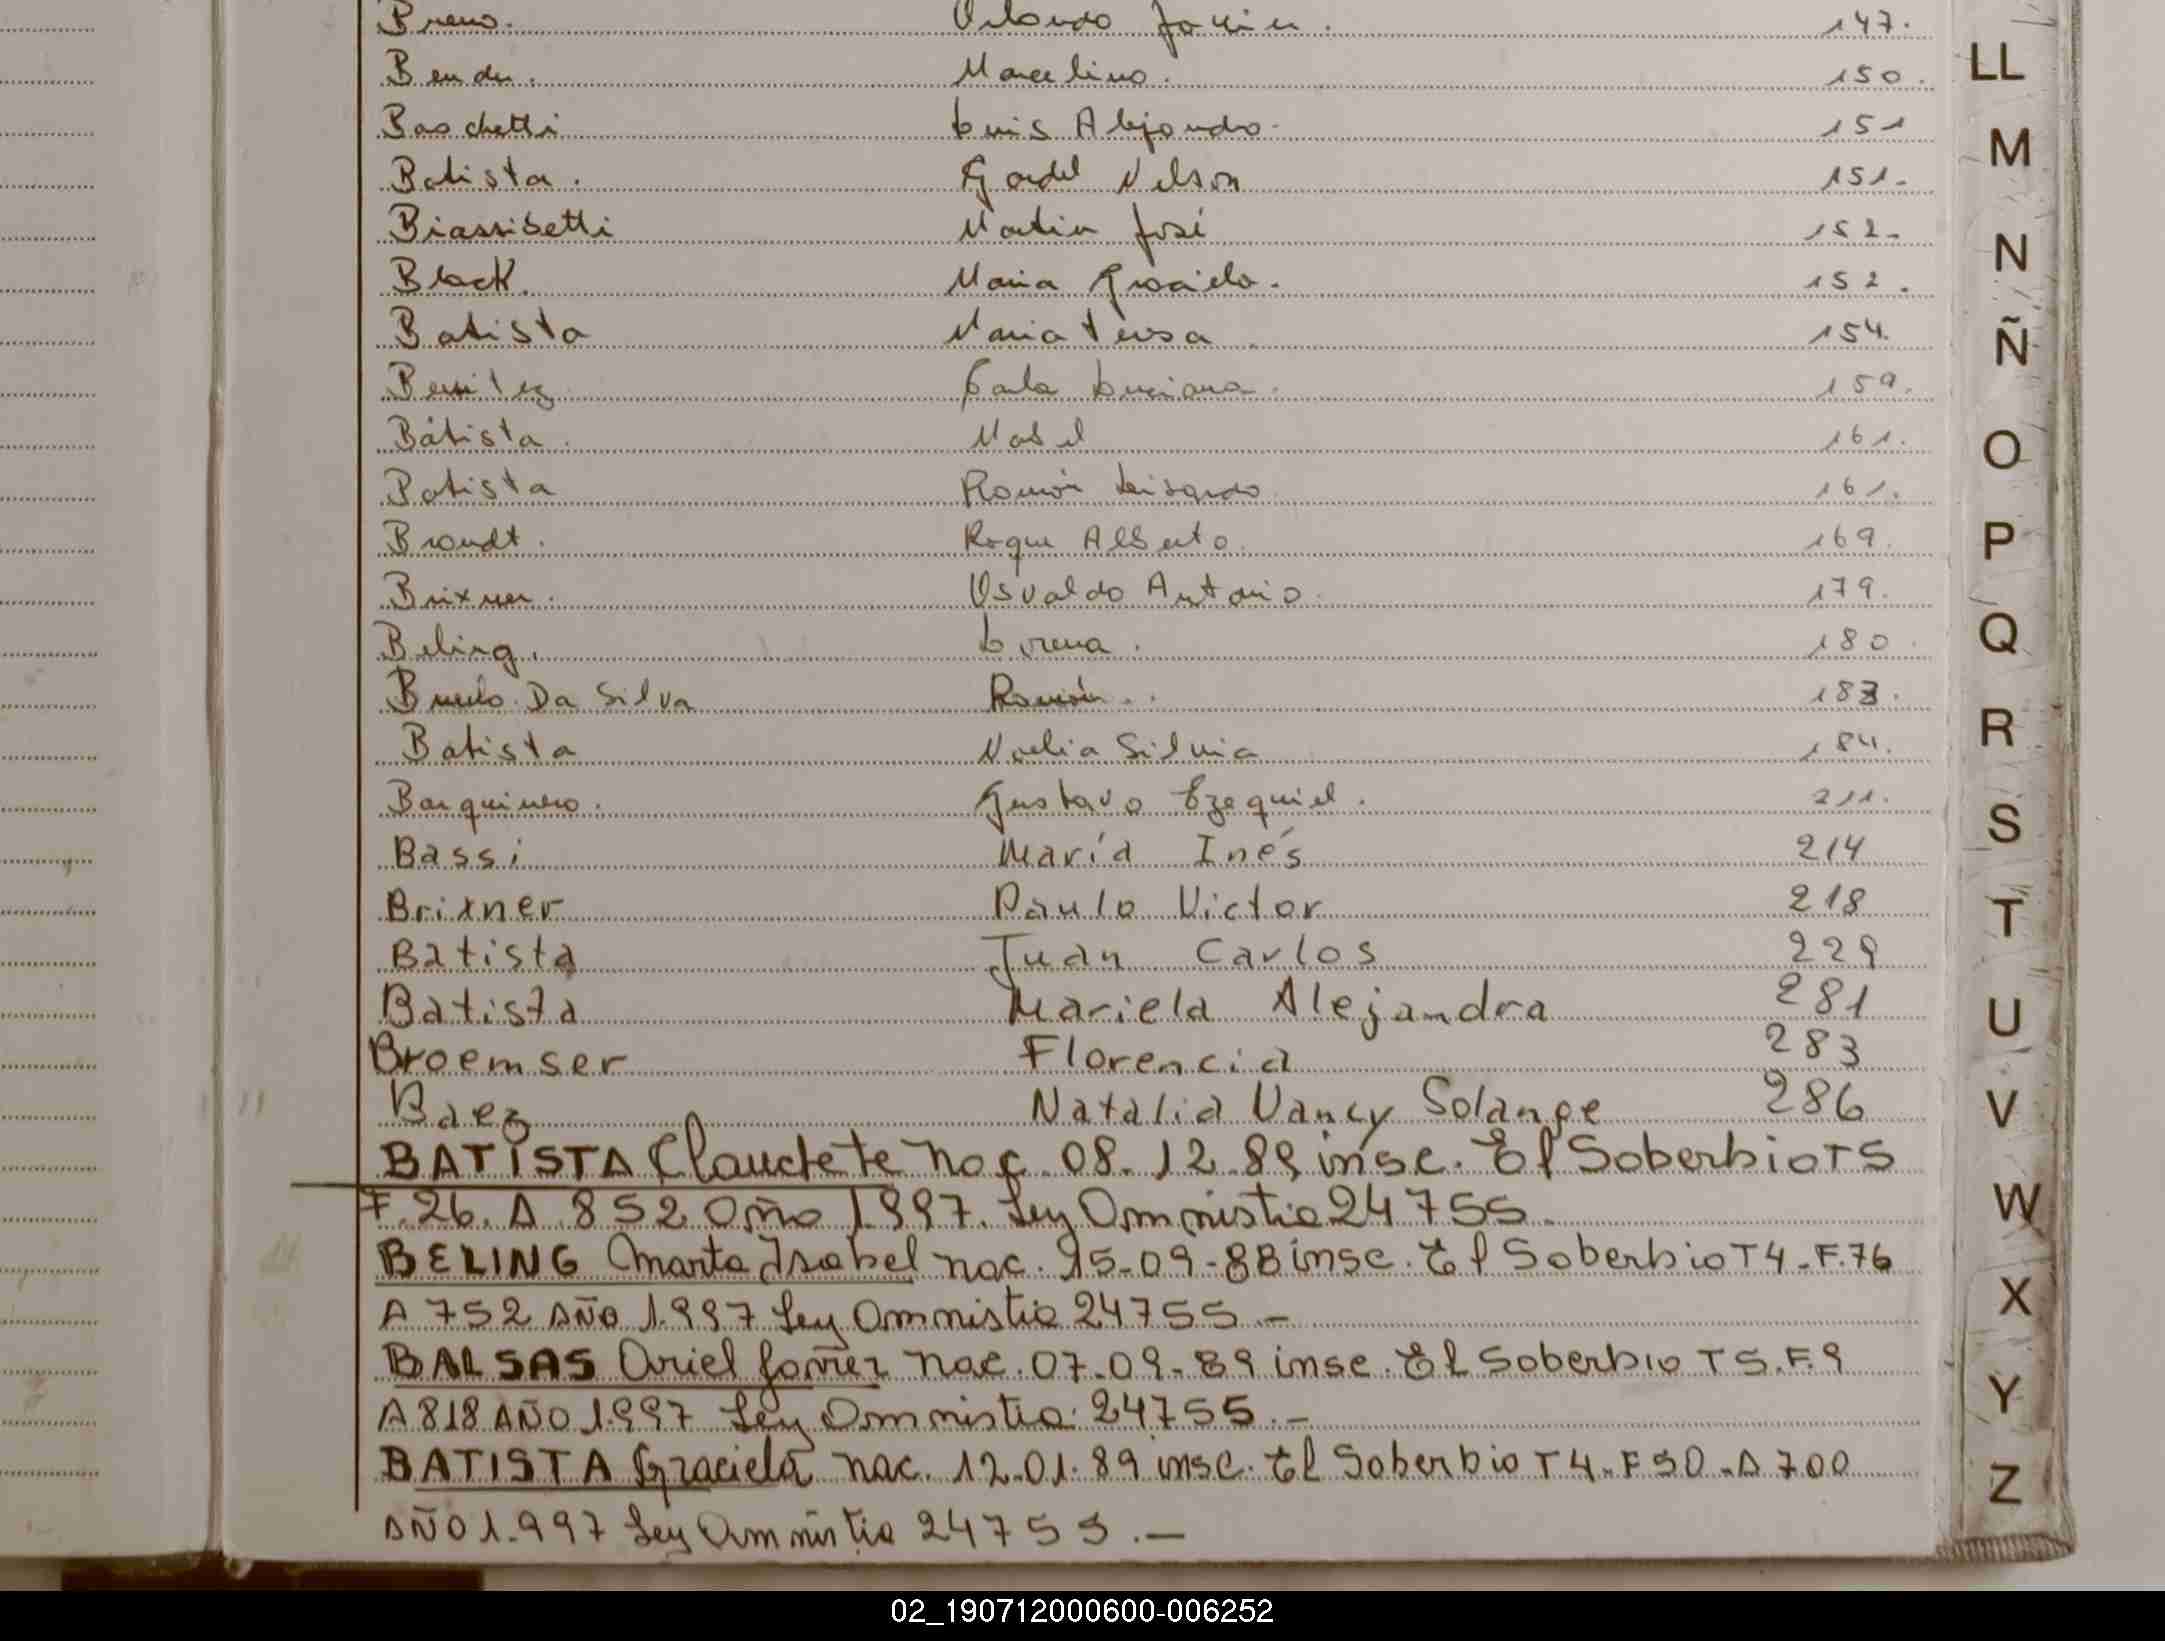 Bruno. Orlando Joaquin. 147.
Bender. Marcelino. 150.
Baschetti Luis Alejandro. 151
Batista. Gardel Nelson 151.
Biassibetti Martin José 152.
Black. Maria Graciela. 152.
Batista Maria Teresa 154.
Benitez Carla Luciana. 159.
Batista. 161.
Batista Ramón Lisardo 161.
Brandt. Roque Alberto. 169.
Brixner. Osvaldo Antonio. 179.
Beling. Lorena. 180
Da Silva Ramón. 183.
Batista Noelia Silvia 184.
Barquinero. Gustavo Ezequiel. 211.
Bassi María Inés 214
Brixner Paulo Victor 218
Batista Juan Carlos 229
Batista Mariela Alejandra 281
Broemser Florencia 283
Baez Natalia Nancy Solange 286
BATISTA Claudete nac. 08.12.89 insc. El Soberbio T5
F.26. A 852 año 1.997. Ley Ammistia 24755.
BELING Marta Isabel nac. 15-09-88 insc. El Soberbio T4-F.76
A 752 AÑO 1.997 Ley Ammistia 24755.-
BALSAS Ariel Javier nac. 07-09-89 insc. El Soberbio T5.F.9
A818 AÑO 1.997 Ley Ammistia 24755.-
BATISTA Graciela nac. 12.01.89 insc. El Soberbio T4-F50-A700
AÑO 1.997 Ley Ammistia 24755.-
LL
M
N
Ñ
O
P
Q
R
S
T
U
V
W
X
Y
Z
02_190712000600-006252